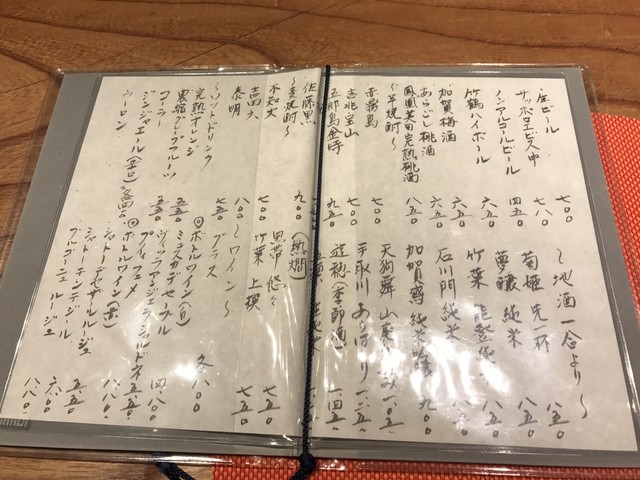 生ビール 七〇〇
サッポロエビス中 七八〇
ノンアルコールビール 四五〇
竹鶴ハイボール 七五〇
加賀梅酒 六五〇
あらごし桃酒 六五〇
鳳凰美田完熟桃酒 八五〇
〜芋焼酎〜
赤霧島 七〇〇
吉兆宝山 七〇〇
五郎島金時 九五〇
佐藤黒
〜麦焼酎〜 九〇〇
不知火 七〇〇
吉四六
泰明 八〇〇
〜ソフトドリンク 七五〇
完熟オレンジ
裏ごしグレープフルーツ 五五〇
コーラー
ジンジャエール(辛口) 各四五〇
ウーロン
〜地酒一合より〜
菊姫 先一杯 八五〇
夢醸 純米 八五〇
竹葉 能登純米 八五〇
石川門 純米
加賀鳶 純米吟醸 九〇〇
天狗舞 山廃 一、〇五〇
手取川 あらばしり 一、一五〇
遊穂(季節酒) 一、四五〇
(熱燗)
黒帯 悠々 七五〇
竹葉 上撰 七五〇
〜ワイン〜
グラス 各八〇〇
◎ボトルワイン(白)
ミュスカデセーブル 四、八〇〇
ヴィッラアンジェラシャルドネ 五、五〇〇
プイィフュメ
◎ボトルワイン(赤)
シャトーデゼサルルージュ 五、五〇〇
シャトーキンテジール 六、〇〇〇
ブルゴーニュルージュ 八、八〇〇